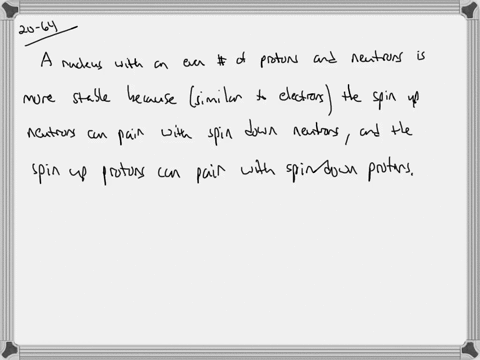 20-64
A nucleus with an even # of protons and neutrons is
more stable because (similar to electrons) the spin up
neutrons can pair with spin down neutrons, and the
spin up protons can pair with spin down protons.